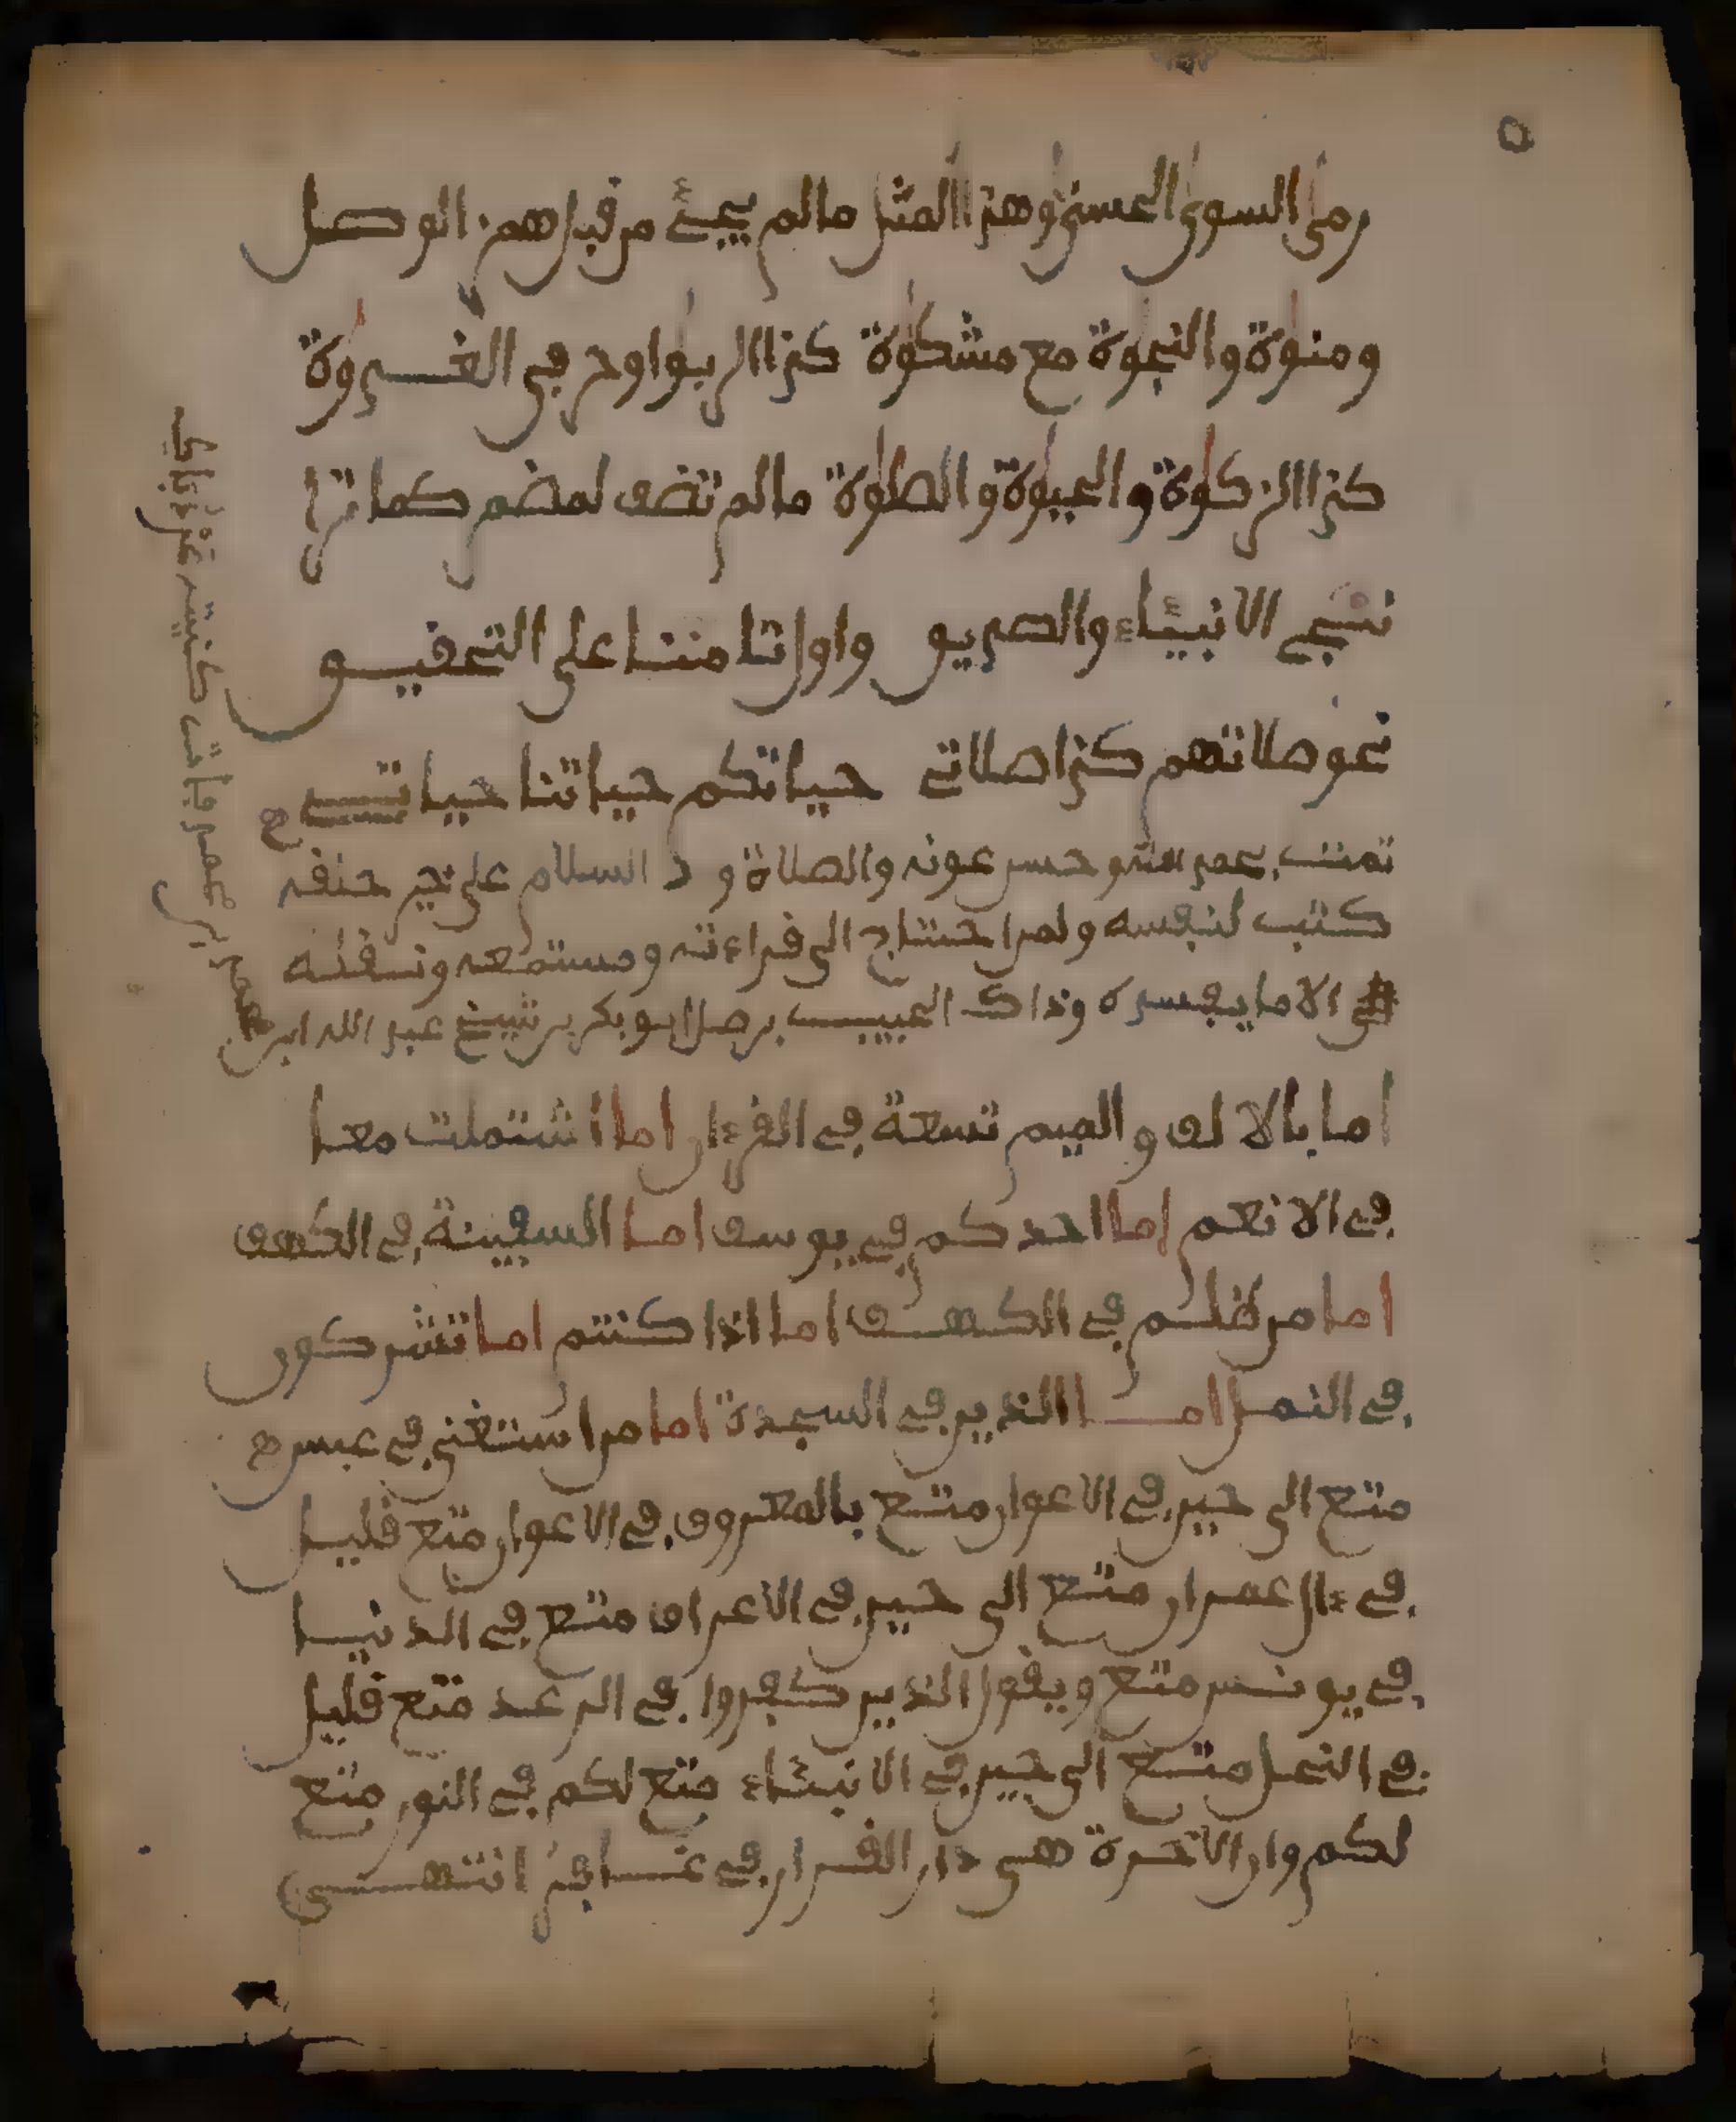 رمى السوى الحسنى وهذا المثل ما لم يجئ من قبل همز الوصل
ومنوة والنجوة مع مشكوة كذا الربوا وحد في الغدوة
كذا الزكوة والحيوة والصلوة ما لم تضف لمضمر كما ترا
نحو الانبياء والصديق واوا تا مننا على التحقيق
نحو صلاتهم كذا صلاتي حياتكم حياتنا حياتي
تمت بحمد الله وحسن عونه والصلاة و السلام على خير خلقه
كتب لنفسه ولمن احتاج الى قراءته ومستمعه ونسخه
الا ما يفسده وذاك الحبيب بن صل ابو بكر بن شيخ عبد الله ابن
محمد بن محمد كنيته
اما بالالف والميم تسعة في القرءان اما اشتملت معا
في الانعم اما احدكم في يوسف اما السفينة في الكهف
اما من ظلم في الكهف اما اذا كنتم اما تشركون
في النمل اما الذين في السجدة اما من استغنى في عبس
متع الى حين في الاعوان متع بالمعروف في الاعوان متع قليل
في ءال عمران متع الى حين في الاعراف متع في الدنيا
في يونس متع ويقول الذين كفروا في الرعد متع قليل
في النحل متع الى حين في الانبياء متع لكم في النور متع
لكم وان الاخرة هي دار القرار في غافر انتهى